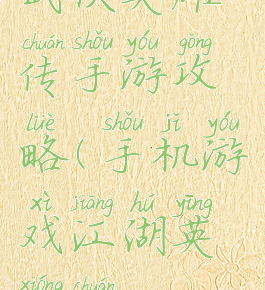 武侠英雄
chuán shǒu yóu gōng
传手游攻
lüè shǒu jī yóu
略(手机游
xì jiāng hú yīng
戏江湖英
xióng chuán